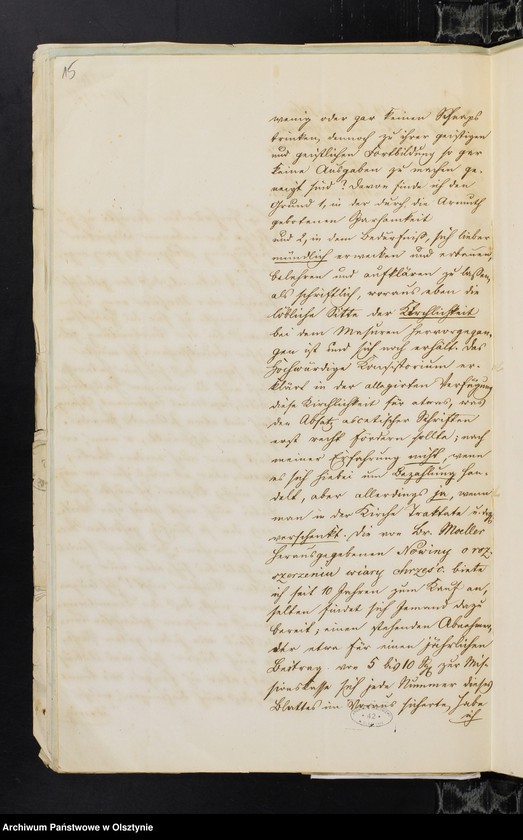 15
wenig oder gar keinen Schnaps
trinken, dennoch zu ihrer geistigen
und geistlichen Fortbildung so gar
keine Ausgaben zu machen ge-
neigt sind? Davon finde ich den
Grund 1, in der durch die Armuth
gebotenen Sparsamkeit
und 2, in dem Bedürfniß, sich lieber
mündlich erwecken und erbauen,
belehren und aufklären zu lassen,
als schriftlich, woraus eben die
löbliche Sitte der Kirchlichkeit
bei dem Masuren hervorgegan-
gen ist und sich noch erhält. Das
Hochwürdige Konsistorium er-
klärt in der allegirten Verfügung
diese Kirchlichkeit für etwas, was
den Absatz ascetischer Schriften
erst recht fördern sollte; nach
meiner Erfahrung nicht, wenn
es sich hiebei um Bezahlung han-
delt, aber allerdings ja, wenn
man in der Kirche Traktate u. dgl.
verschenkt. Die von Br. Moeller
herausgegebenen Nowiny o roz-
szerzeniu wiary chrześc. biete
ich seit 10 Jahren zum Kauf an,
selten findet sich Jemand dazu
bereit; einen stehenden Abnehmer,
der etwa für einen jährlichen
Beitrag von 5 bis 10 Sg. zur Mis-
sionskasse sich jede Nummer dieses
Blattes im Voraus sicherte, habe
ich
42
Archiwum Państwowe w Olsztynie